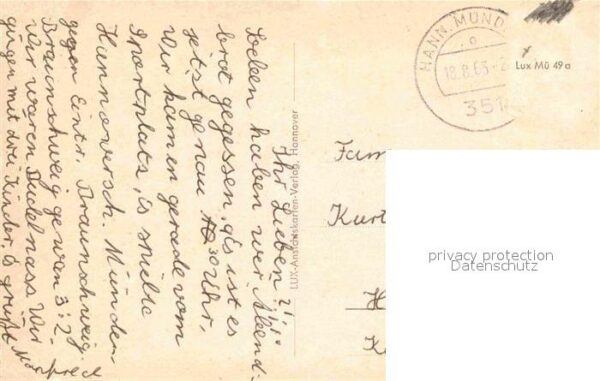 Ihr Lieben!
Soeben haben wir Abend-
brot gegessen, es ist es
jetzt genau 30 Uhr,
Wir kamen gerade vom
Sportplatz, es spielte
Hannoversch. Münden
gegen Eintr. Braunschweig.
Braunschweig gewan 3:2.
wir waren Pudelnass. Wir
gingen mit drei Kinder. Es grüßt Manfred
LUX-Ansichtskarten-Verlag, Hannover
HANN. MÜND
18.8.63-2
351
Lux Mü 49 a
Fam
Kurt
H
privacy protection
Datenschutz